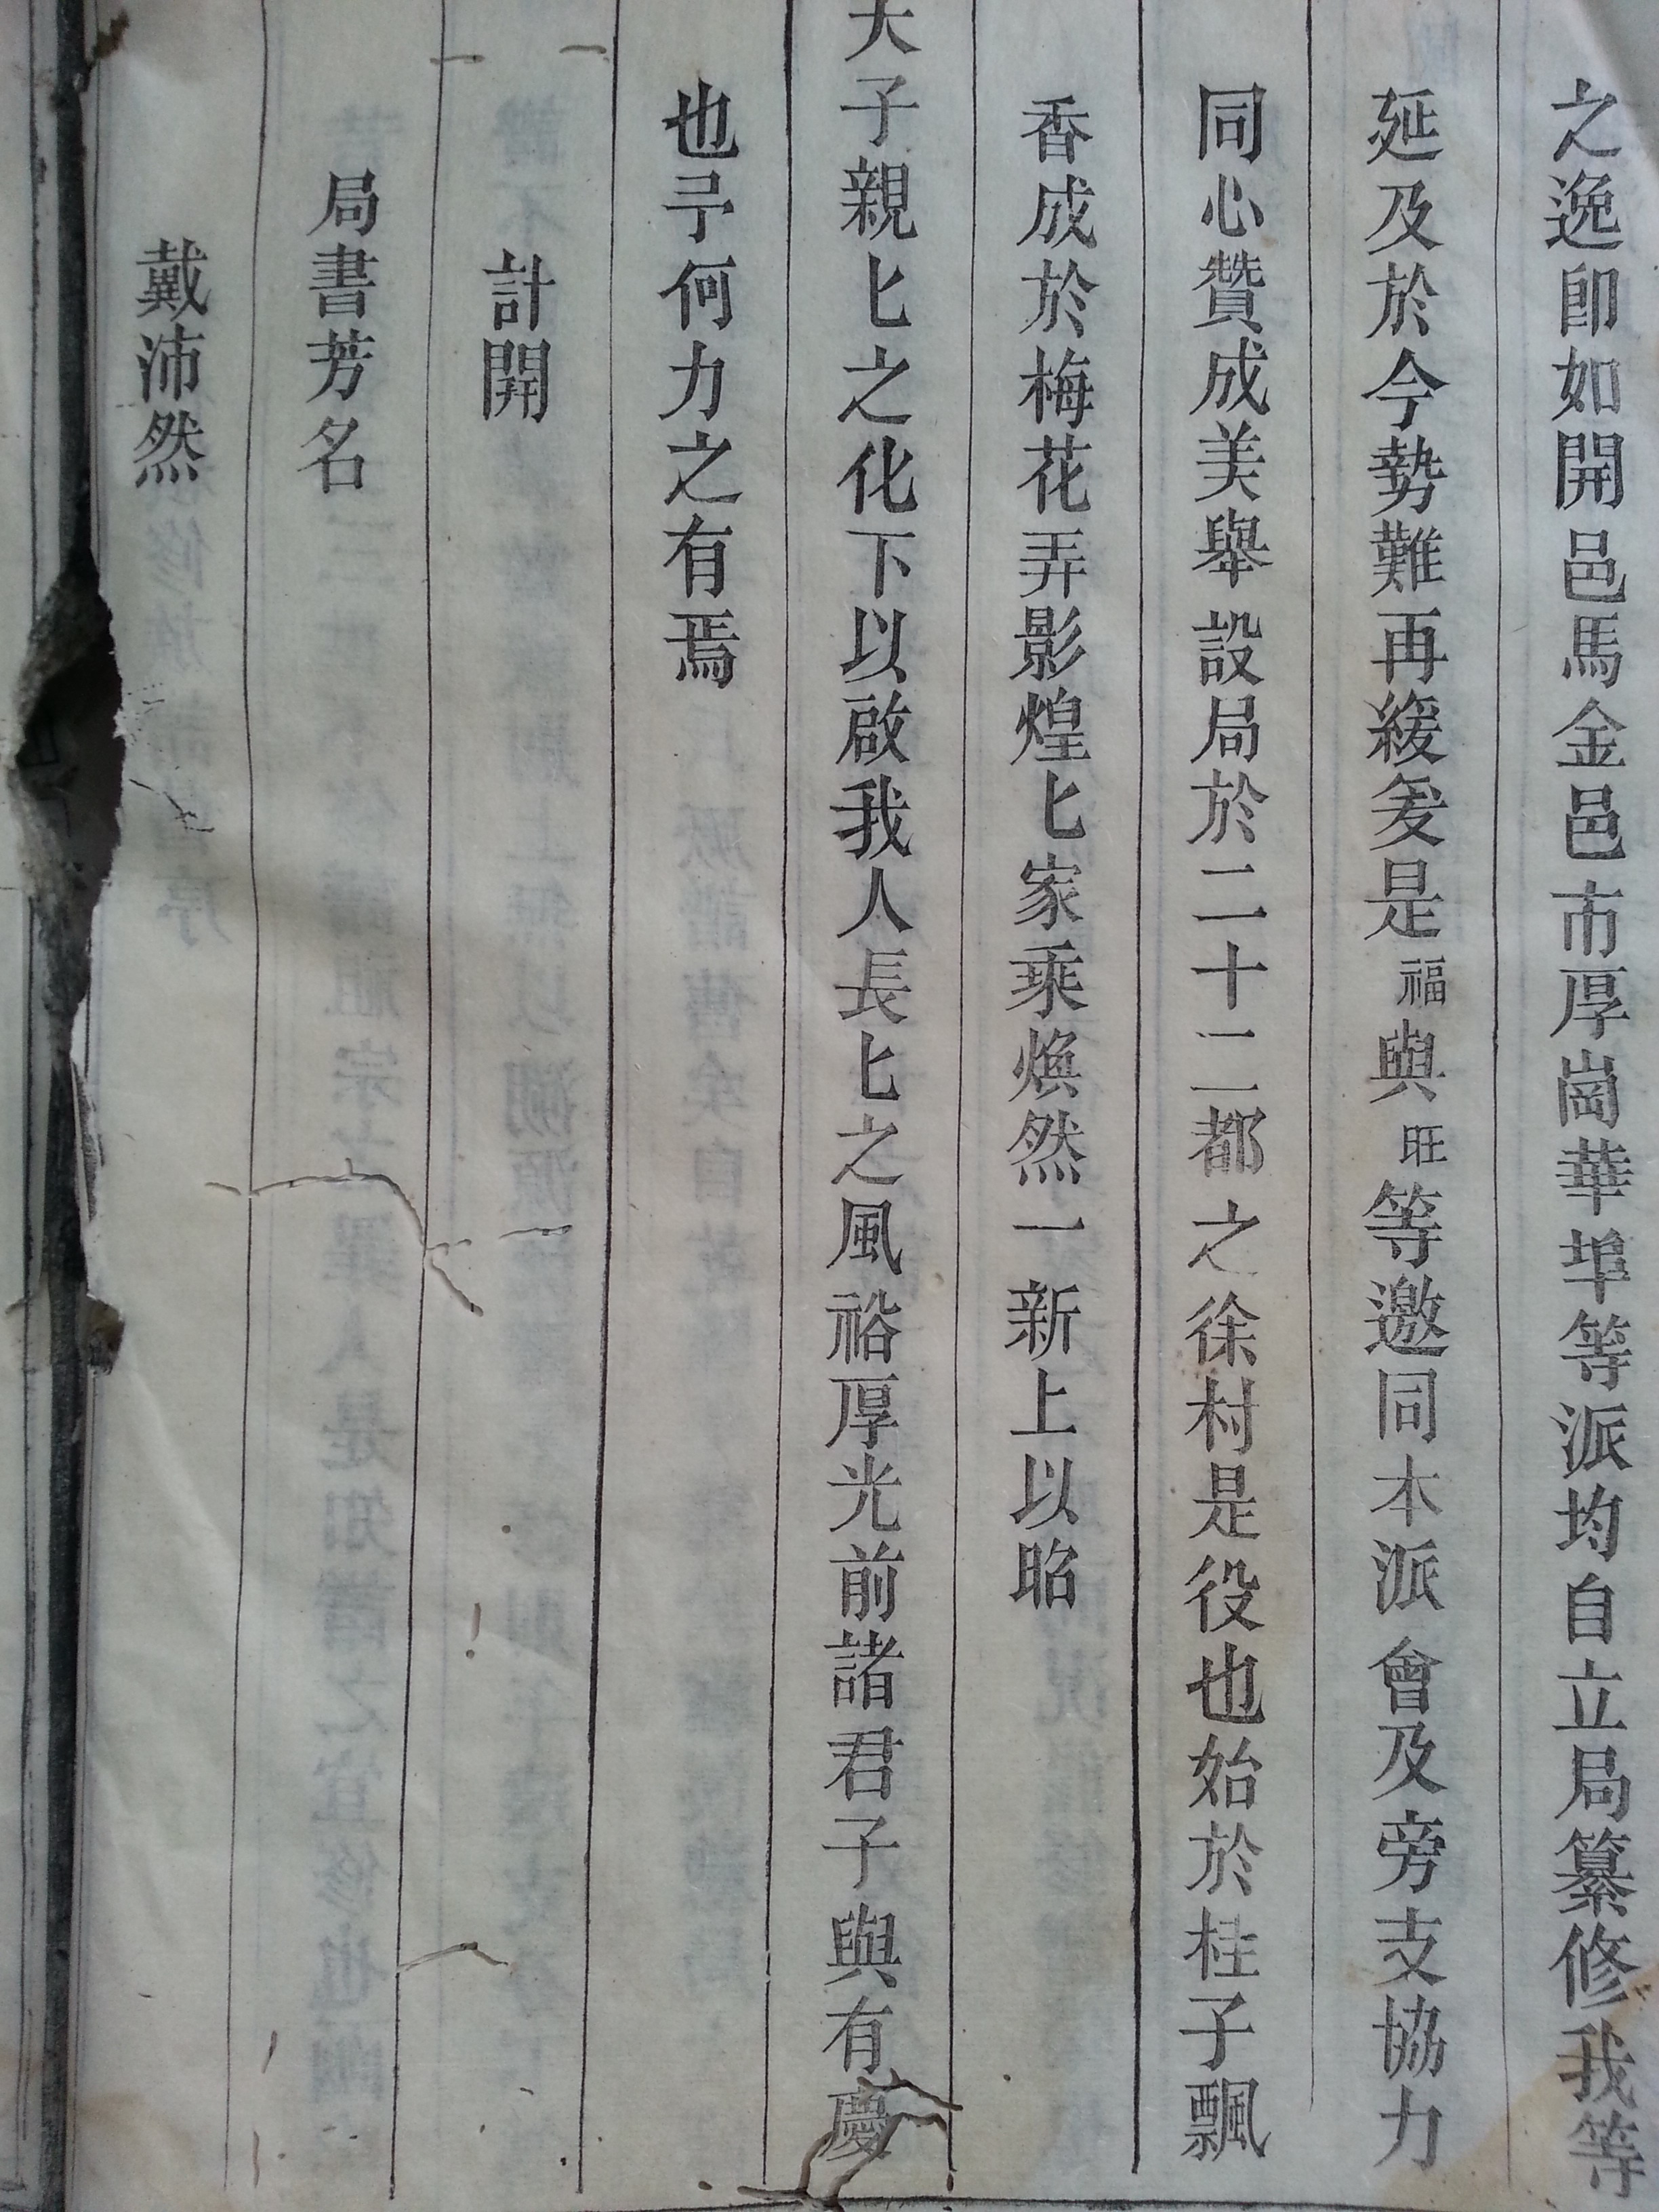 之逸卽如開邑馬金邑市厚崗華埠等派均自立局纂修我等
延及於今勢難再緩爰是福與旺等邀同本派會及旁支協力
同心贊成美舉設局於二十二都之徐村是役也始於桂子飄
香成於梅花弄影煌匕家乘煥然一新上以昭
天子親匕之化下以啟我人長匕之風裕厚光前諸君子與有慶
也予何力之有焉
計開
局書芳名
戴沛然